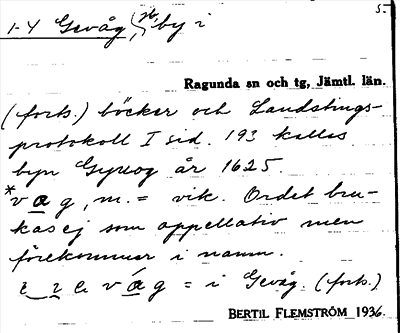 1-4 Gevåg, by i
5.
Ragunda sn och tg, Jämtl. län.
(forts.) böcker och Landstings-
protokoll I sid. 193 kallas
byn Gyuog år 1625.
*vag, m. = vik. Ordet bru-
kas ej som appellativ men
förekommer i namn.
vág = i Gevåg. (forts.)
BERTIL FLEMSTRÖM 1936.